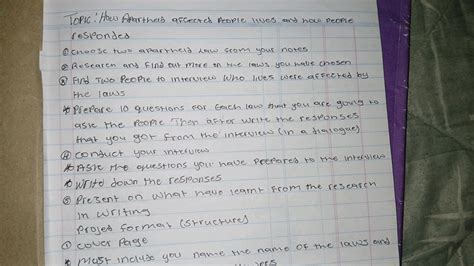 TOPIC: How Apartheid affected People lives and how People
responded
① choose two apartheid law from your notes
② Research and find out more on the laws you have chosen
③ Find Two People to interview who lives were affected by
the laws
* Prepare 10 questions for each law that you are going to
ask the People Then after write the responses
that you got from the interview (in a dialogue)
④ conduct your interview
* Ask the questions you have prepared to the interview
* Write down the responses
⑤ Present on what have learnt from the research
in writing
Projed format (structure)
① cover Page
* Must include you name the name of the laws and